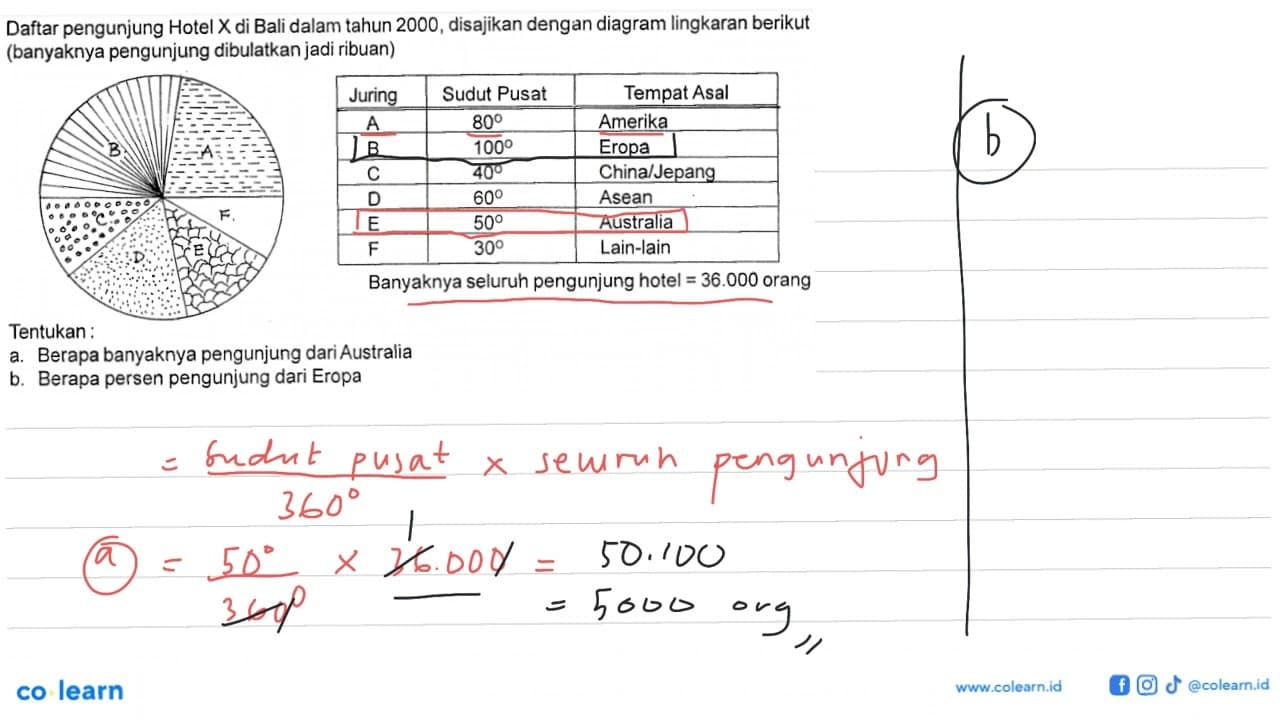 Daftar pengunjung Hotel X di Bali dalam tahun 2000, disajikan dengan diagram lingkaran berikut
(banyaknya pengunjung dibulatkan jadi ribuan)
B.
A.
C.
D.
E
F.
Juring Sudut Pusat Tempat Asal
A 80° Amerika
B 100° Eropa
C 40° China/Jepang
D 60° Asean
E 50° Australia
F 30° Lain-lain
Banyaknya seluruh pengunjung hotel = 36.000 orang
Tentukan :
a. Berapa banyaknya pengunjung dari Australia
b. Berapa persen pengunjung dari Eropa
= sudut pusat x seluruh pengunjung
360°
1
a = 50° x 36.000 = 50.100
360° = 5000 org
b
co learn
www.colearn.id @colearn.id